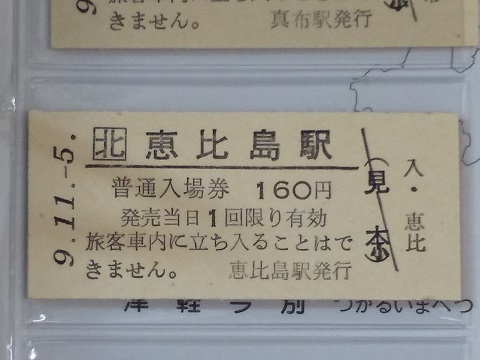 旅客車内に立ち入ることはで
きません。 真布駅発行
9.11.-5.
北 恵比島駅
普通入場券 160円
発売当日1回限り有効
旅客車内に立ち入ることはで
きません。 恵比島駅発行
(見本)
入・恵比
津軽今別 つがるいまべつ